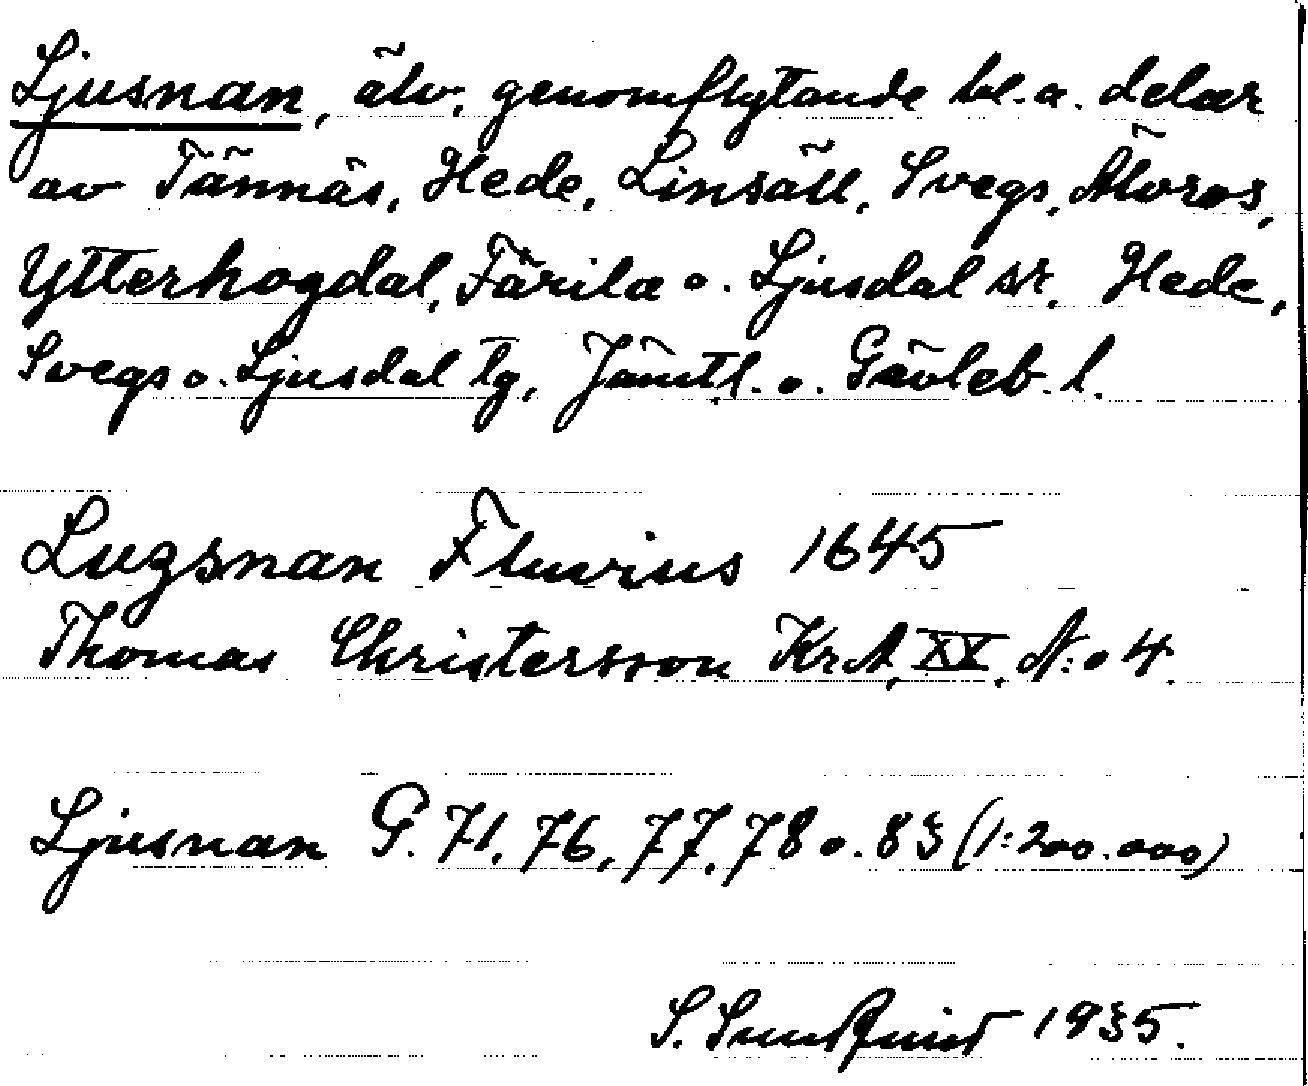 Ljusnan, älv, genomflytande bl.a. delar
av Tännäs, Hede, Linsäll, Svegs, Älvros,
Ytterhogdal, Färila o. Ljusdal sr, Hede,
Svegs o. Ljusdal tg, Jämtl. o. Gävleb. l.
Luzsnan Fluvius 1645
Thomas Christersson KrA, XX, N:o 4.
Ljusnan G. 71, 76, 77, 78 o. 83 (1:200.000)
S. Sundquist 1935.